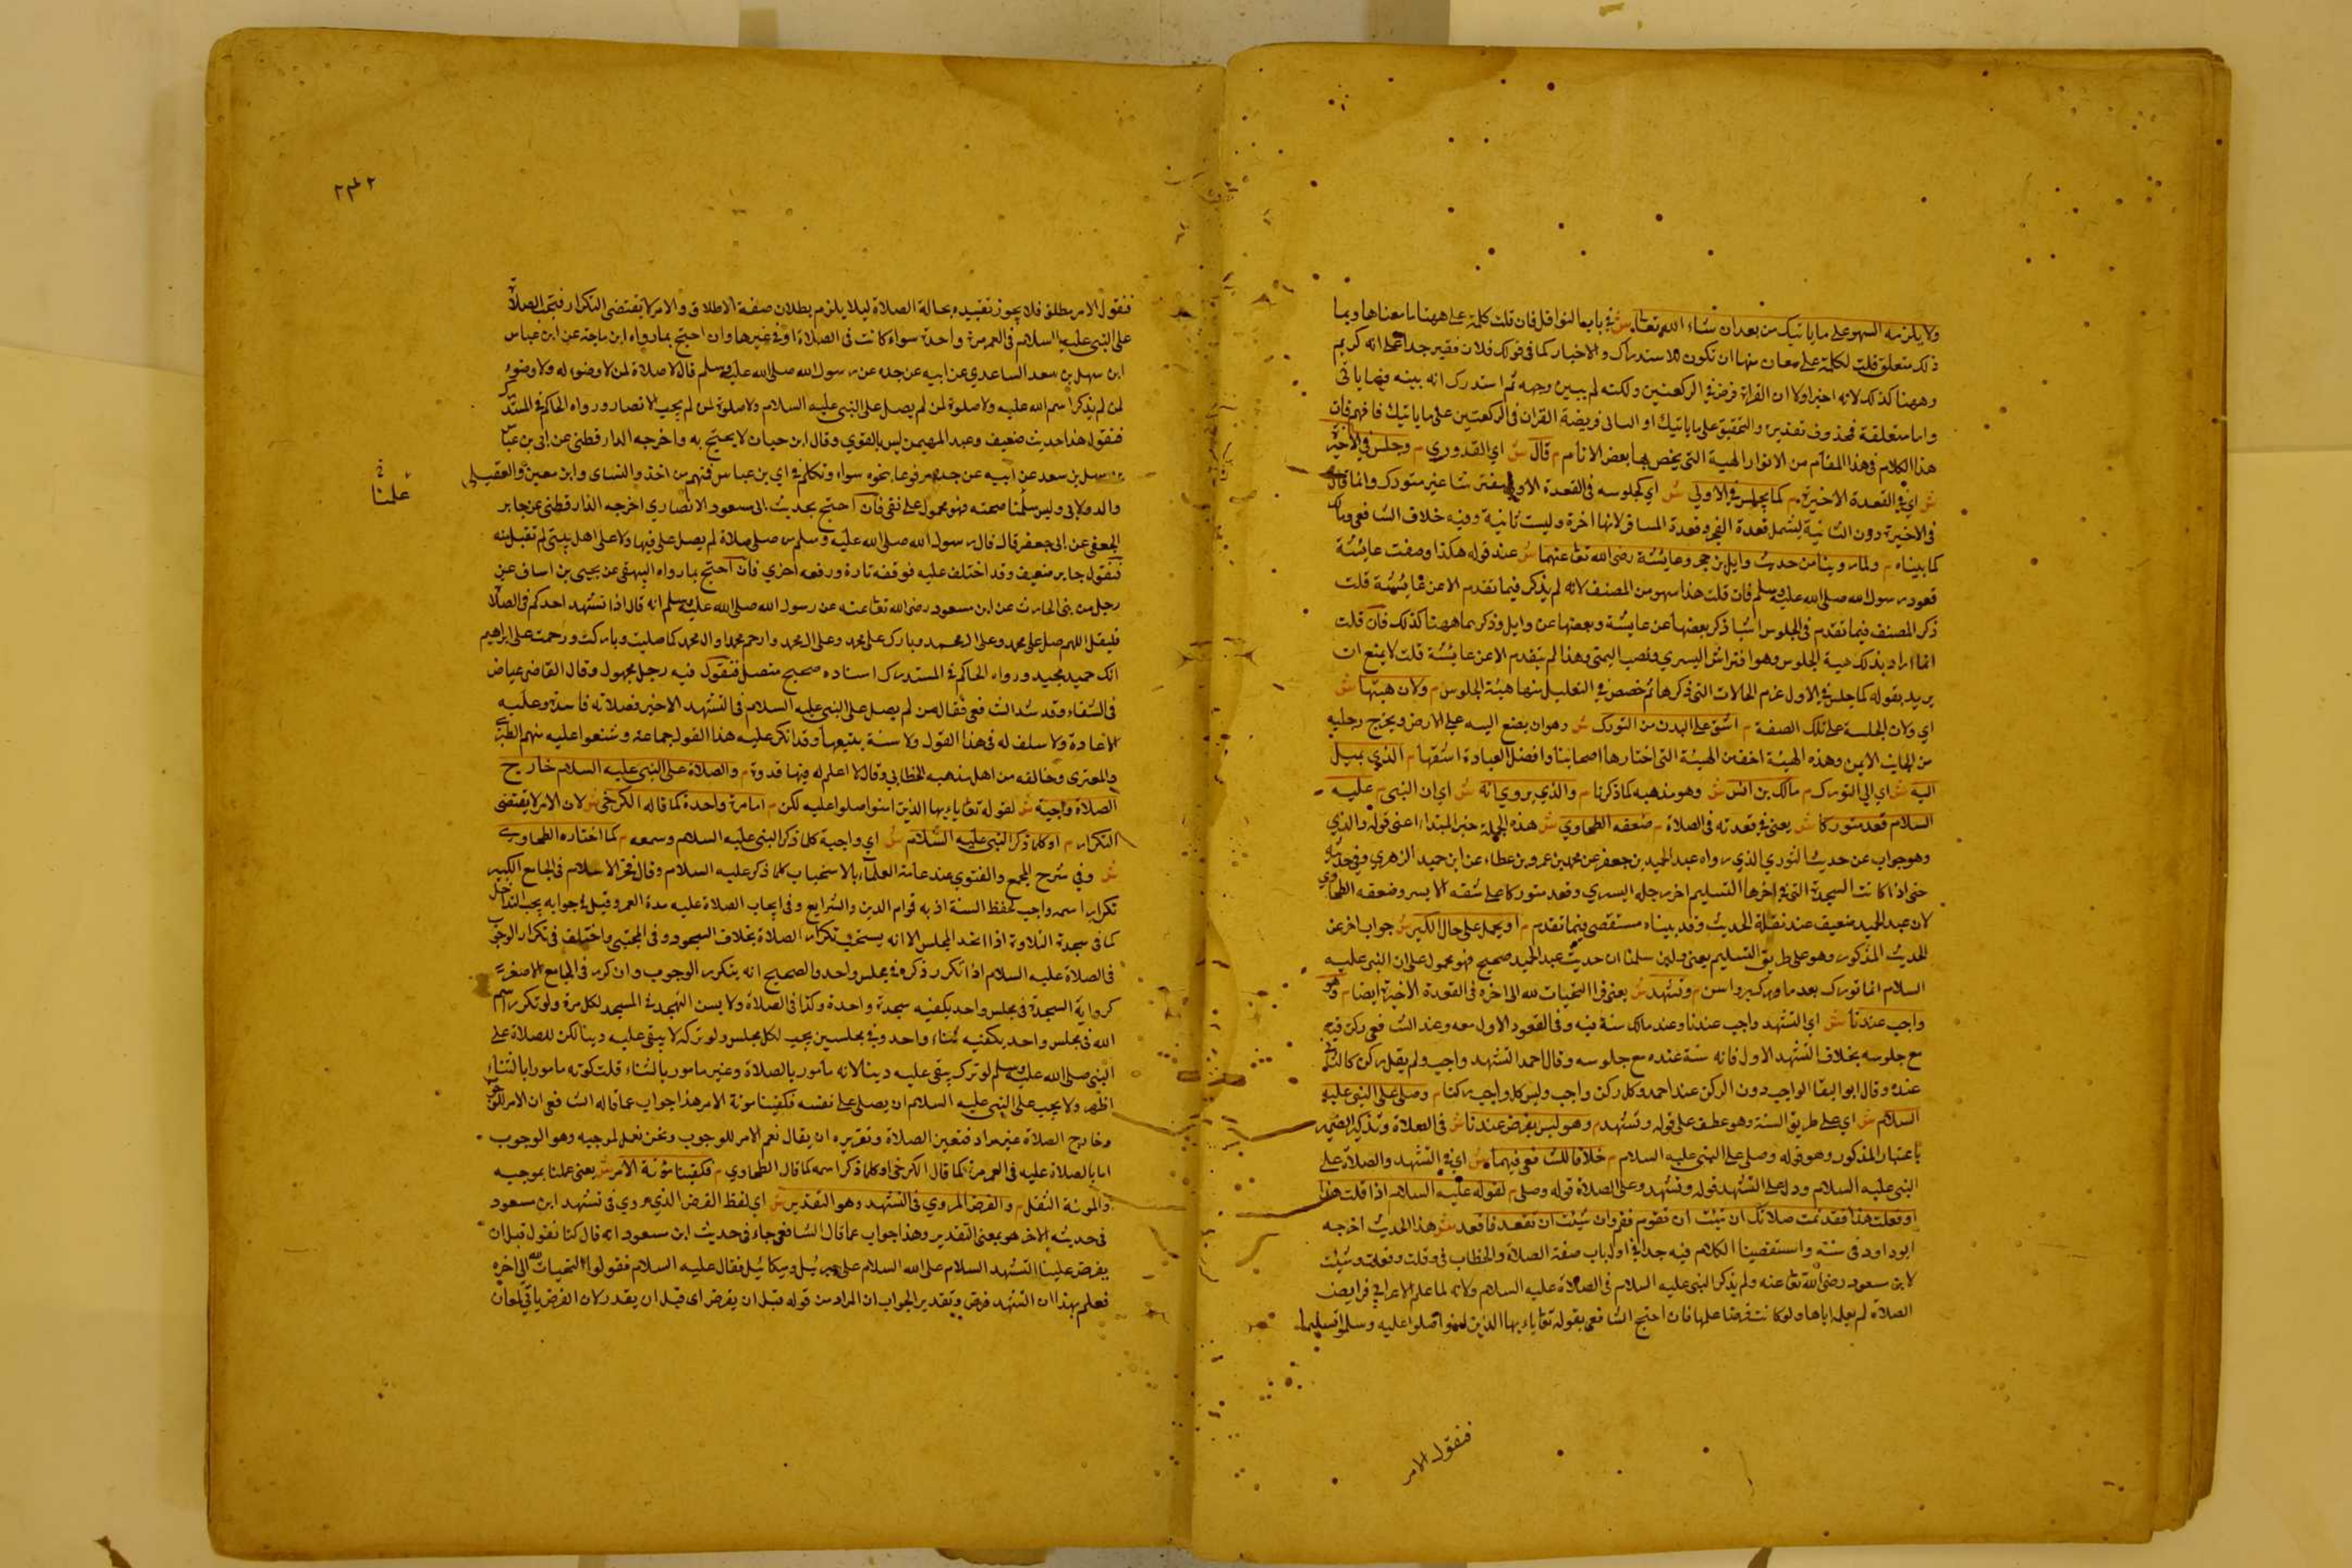 ولا يلزمه السهو على ما ياتيك من بعد ان شاء الله تعالى ش في باب النوافل فان قلت كلمة على ههنا ما معناها وبما
ذلك متعلق قلت لكلمة على معان منها ان تكون للاستدراك والاخبار كما في قولك فلان فقير جدا على انه كريم
وههنا كذلك لانه اخبر اولا ان القراة فرض في الركعتين ولكنه لم يبين وجهه ثم استدرك انه بينه فيما ياتى
واما متعلقة فمحذوف تقديره والتحقيق على ما ياتيك او البيان فريضة القران في الركعتين على ما ياتيك فافهم فان
هذا الكلام في هذا المقام من الانوار الهيبة التي يختص بها بعض الانام م قال ش اي القدوري م وجلس في الاخيرة
ش اي في القعدة الاخيرة م كما يجلس في الاولى ش اي كجلوسه في القعدة الاولى مفترشا غير متورك وانما قال
في الاخيرة دون الثانية ليشمل قعدة الفجر وقعدة المسافر لانها اخرة وليست ثانية وفيه خلاف الشافعي ومالك
كما بيناه م ولما روينا من حديث وايل بن حجر وعايشة رضي الله تعا عنهما ش عند قوله هكذا وصفت عايشة
قعود رسول الله صلى الله عليه وسلم فان قلت هذا سهو من المصنف لانه لم يذكر فيما تقدم الا عن عايشة قلت
ذكر المصنف فيما تقدم في الجلوس اشيا ذكر بعضها عن عايشة وبعضها عن وايل وذكر بما ههنا كذلك فان قلت
انما اراد بذلك هية الجلوس وهو افتراش اليسرى ونصب اليمنى وهذا لم يتقدم الا عن عايشة قلت لا يمنع ان
يريد بقوله كما جلس في الاول عدم الحالات التي ذكرها ثم خصص في التعليل منها هيئة الجلوس م ولان هيتها ش
اي ولان الجلسة على تلك الصفة م اشق على البدن من التورك ش وهو ان يضع اليسه على الارض ويخرج رجليه
من الجانب الايمن وهذه الهيئة اخف من الهيئة التي اختارها اصحابنا وافضل العبادة اشقها م الذي يميل
اليه ش اي الى التورك م مالك بن انس ش وهو مذهبه كما ذكرنا م والذي يروي انه ش اي ان النبى م عليه
السلام قعد متوركا ش يعنى في قعدته في الصلاة م ضعفه الطحاوي ش هذه الجملة خبر المبتدا اعنى قوله والذي
وهو جواب عن حديث الثوري الذي رواه عبد الحميد بن جعفر عن محمد بن عمرو بن عطاء عن ابن حميد الزهري وفي حديثه
حتى اذا كانت السجدة التي في اخرها التسليم اخر رجله اليسرى وقعد متوركا على شقه الايسر وضعفه الطحاوي
لان عبد الحميد ضعيف عند نقلة الحديث وقد بيناه مستقصى فيما تقدم م او يحمل على حال الكبر ش جواب اخر عن
الحديث المذكور وهو على طريق التسليم يعنى ولين سلمنا ان حديث عبد الحميد صحيح فهو محمول على ان النبى عليه
السلام انما تورك بعد ما كبر واسن م وتشهد ش يعنى قرا التحيات لله الى اخره في القعدة الاخيرة ايضا م وهو
واجب عندنا ش اي التشهد واجب عندنا وعند مالك سنة فيه وفى القعود الاول معه وعند الشافعى ركن فيه
مع جلوسه بخلاف التشهد الاول فانه سنة عنده مع جلوسه وقال احمد التشهد واجب ولم يقل ركن كالثاني
عنده وقال ابو البقا الواجب دون الركن عند احمد وكل ركن واجب وليس كل واجب ركنا م وصلى على النبى عليه
السلام ش اي على طريق السنة وهو عطف على قوله وتشهد م وهو ليس بفرض عندنا ش في الصلاة وتذكير الضمير
باعتبار المذكور وهو قوله وصلى على النبى عليه السلام م خلافا للشافعى فيهما ش اي في التشهد والصلاة على
النبى عليه السلام ودل على التشهد قوله وتشهد وعلى الصلاة قوله وصلى م لقوله عليه السلام اذا قلت هذا
او فعلت هذا فقد تمت صلاتك ان شئت ان تقوم فقم وان شئت ان تقعد فاقعد ش هذا الحديث اخرجه
ابو داود في سننه واستقصينا الكلام فيه جدا في اول باب صفة الصلاة والخطاب في قلت وفعلت وشئت
لابن سعود رضي الله تعا عنه ولم يذكر النبى عليه السلام في الصلاة عليه السلام ولانه لما علم الاعرابي فرايض
الصلاة لم يعلمه اياها ولو كانت فرضا علمها فان احتج الشافعى بقوله تعا ياءيها الذين امنوا صلوا عليه وسلموا تسليما
فنقول الامر
٢٤٢
فنقول الامر مطلق فلا يجوز تقييده بحالة الصلاة ليلا يلزم بطلان صفة الاطلاق والامر لا يقتضى التكرار فتجب الصلاة
على النبي عليه السلام في العمر مرة واحدة سواء كانت في الصلاة او في غيرها وان احتج بما رواه ابن ماجة عن ابن عباس
ابن سهل بن سعد الساعدي عن ابيه عن جده عن رسول الله صلى الله عليه وسلم قال لا صلاة لمن لا وضوء له ولا وضوء
لمن لم يذكر اسم الله عليه ولا صلوة لمن لم يصل على النبى عليه السلام ولا صلوة لمن لم يحب الانصار ورواه الحاكم في المستدرك
فنقول هذا حديث ضعيف وعبد المهيمن ليس بالقوي وقال ابن حبان لا يحتج به واخرجه الدارقطنى عن ابى بن عباس
بن سهل بن سعد عن ابيه عن جده مرفوعا بنحوه سواء وتكلم في ابي بن عباس فمنهم من اخذ والنساى وابن معين والعقيلى
والدولابى وليس سلمنا صحته فهو محمول على نفى فان احتج بحديث ابى سعود الانصاري اخرجه الدارقطنى عن جابر
الجعفي عن ابى جعفر قال قال رسول الله صلى الله عليه وسلم من صلى صلاة لم يصل على فيها ولا على اهل بيتى لم تقبل منه
فنقول جابر ضعيف وقد اختلف عليه فوقفه تارة ورفعه اخري فان احتج بما رواه البيهقى عن يحيى بن اساف عن
رجل من بنى الحارث عن ابن مسعود رضي الله تعا عنه عن رسول الله صلى الله عليه وسلم انه قال اذا تشهد احدكم في الصلاة
فليقل اللهم صل على محمد وعلى ال محمد وبارك على محمد وعلى ال محمد وارحم محمدا وال محمد كما صليت وباركت ورحمت على ابراهيم
انك حميد مجيد ورواه الحاكم في المستدرك اسناده صحيح متصل فنقول فيه رجل مجهول وقال القاضى عياض
في الشفاء وقد شذ الشافعى فقال من لم يصل على النبى عليه السلام في التشهد الاخير فصلاته فاسدة وعليه
الاعادة ولا سلف له في هذا القول ولا سنة يتبعها وقد انكر عليه هذا القول جماعة وشنعوا عليه منهم الطبري
والمعتزى وخالفه من اهل مذهبه الخطابي وقال لا اعلم له فيها قدوة م والصلاة على النبى عليه السلام خارج
الصلاة واجبة ش لقوله تعا ياءيها الذين امنوا صلوا عليه لكن م اما مرة واحدة كما قاله الكرخى ش لان الامر لا يقتضى
التكرار م او كلما ذكر النبى عليه السلام ش اي واجبة كلما ذكر النبى عليه السلام وسمعه م كما اختاره الطحاوي
ش وفي شرح المجمع والفتوي عند عامة العلماء بالاستحباب كلما ذكر عليه السلام وقال فخر الاسلام في الجامع الكبير
تكرار اسمه واجب لحفظ السنة اذ به قوام الدين والشرايع وفي ايجاب الصلاة عليه مدة العمر وقيل في جوابه يجب التداخل
كما في سجدة التلاوة اذا اتحد المجلس الا انه يستحب تكرار الصلاة بخلاف السجود وفى المجتبى واختلف في تكرار الوجوب
في الصلاة عليه السلام اذا تكرر ذكره في مجلس واحد والصحيح انه يتكرر الوجوب وان كرر في الجامع الاصغر
كرر اية السجدة في مجلس واحد يكفيه سجدة واحدة وكذا في الصلاة ولا يسن التهجد في المسجد لكل مرة ولو تكرر اسم
الله في مجلس واحد يكفيه ثناء واحد وفي مجلسين يجب لكل مجلس ولو تركه لا يبقى عليه دينا لكن للصلاة على
النبى صلى الله عليه وسلم لو ترك يبقى عليه دينا لانه مامور بالصلاة وغير مامور بالثناء قلت كونه مامورا بالثناء
اظهر ولا يجب على النبى عليه السلام ان يصلى على نفسه فكفينا مونة الامر هذا جواب عما قاله الشافعى ان الامر للوجوب
وخارج الصلاة غير مراد فتعين الصلاة وتقريره ان يقال نعم الامر للوجوب ونحن نعمل لموجبه وهو الوجوب
اما بالصلاة عليه في العمر مرة كما قال الكرخى او كلما ذكر اسمه كما قال الطحاوي م فكفينا مؤنة الامر ش يعنى عملنا بموجبه
والمونة الثقل م والفرض المروي في التشهد وهو التقدير ش اي لفظ الفرض الذي روي في تشهد ابن سعود
في حديثه الاخر هو بمعنى التقدير وهذا جواب عما قال الشافعى جاء في حديث ابن سعود انه قال كنا نقول قبل ان
يفرض علينا التشهد السلام على الله السلام على جبريل وميكائيل فقال عليه السلام فقولوا التحيات لله الى اخره
فعلم بهذا ان التشهد فرض وتقدير الجواب ان المراد من قوله قبل ان يفرض اى قبل ان يقدر لان الفرض ياتي لمعان
علمنا